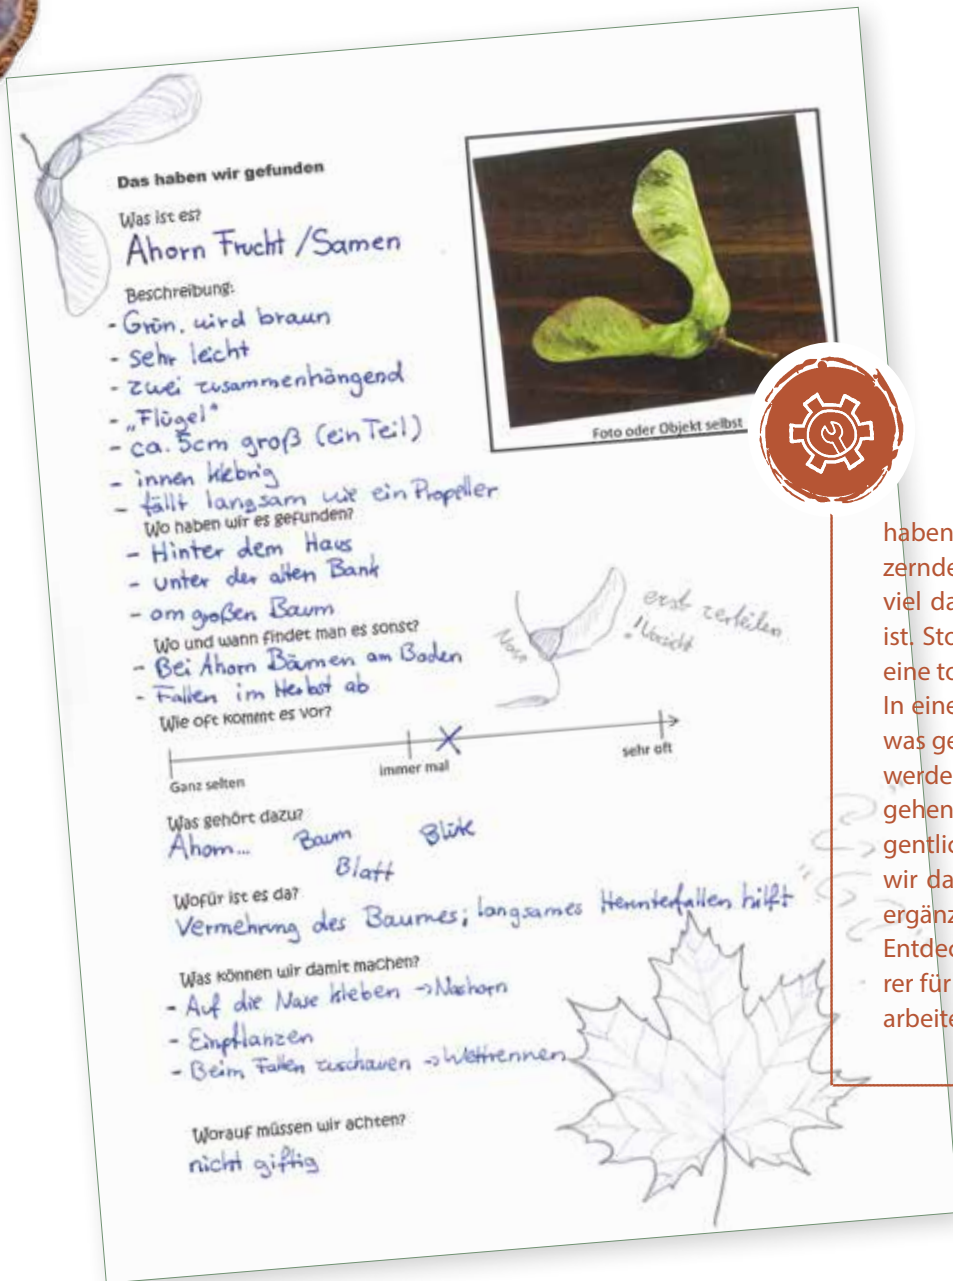 Das haben wir gefunden
Was ist es?
Ahorn Frucht / Samen
Beschreibung:
- Grün, wird braun
- sehr leicht
- zwei zusammenhängend
- „Flügel“
- ca. 5cm groß (ein Teil)
- innen klebrig
- fällt langsam wie ein Propeller
Wo haben wir es gefunden?
- Hinter dem Haus
- unter der alten Bank
- am großen Baum
Wo und wann findet man es sonst?
- Bei Ahorn Bäumen am Boden
- Fallen im Herbst ab
Wie oft kommt es vor?
Ganz selten
immer mal
sehr oft
Was gehört dazu?
Ahorn... Baum Blüte
Blatt
Wofür ist es da?
Vermehrung des Baumes; langsames Herunterfallen hilft
Was können wir damit machen?
- Auf die Nase kleben -> Nashorn
- Einpflanzen
- Beim Fallen zuschauen -> Wettrennen
Worauf müssen wir achten?
nicht giftig
Foto oder Objekt selbst
Nase
erst zerteilen
! Vorsicht
haben
zernde
viel da
ist. Sto
eine to
In eine
was ge
werde
gehen
gentlic
wir da
ergänz
Entdec
rer für
arbeite